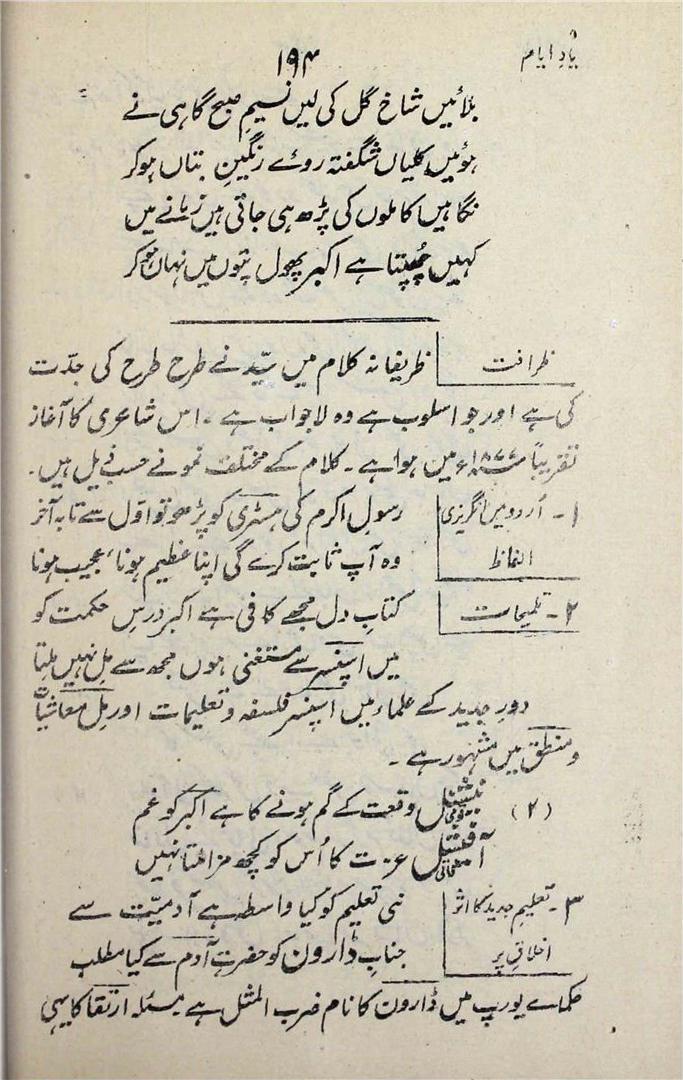 یادِ ایام
۱۹۴
بلائیں شاخ گل کی لیں نسیمِ صبح گاہی نے
ہوئیں کلیاں شگفتہ روئے رنگینِ بتاں ہو کر
نگاہیں کاملوں کی پڑھ ہی جاتی ہیں زمانے میں
کہیں چُھپتا ہے اکبر پھول پتّوں میں نہاں ہو کر
ظرافت
ظریفانہ کلام میں سیّد نے طرح طرح کی جدّت
کی ہے اور جو اسلوب ہے وہ لاجواب ہے ۔ اس شاعری کا آغاز
تقریباً ۱۸۷۷ء میں ہوا ہے ۔ کلام کے مختلف نمونے حسب ذیل ہیں ۔
۱۔ اُردو میں انگریزی
الفاظ
رسولِ اکرم کی ہسٹری کو پڑھو تو اوّل سے تا بہ آخر
وہ آپ ثابت کرے گی اپنا عظیم ہونا، عجیب ہونا
۲۔ تلمیحات
کتابِ دل مجھے کافی ہے اکبر درسِ حکمت کو
میں اسپنسر سے مستغنی ہوں مجھ سے مِل نہیں ملتا
دورِ جدید کے علماء میں اسپنسر فلسفہ و تعلیمات اور مِل معاشیات
و منطق میں مشہور ہے ۔
(۲) نیشنل وقعت کے گم ہونے کا ہے اکبر کو غم
قومی
آفیشیل عزت کا اُس کو کچھ مزا ملتا نہیں
۳۔ تعلیم جدید کا اثر
اخلاق پر
نئی تعلیم کو کیا واسطہ ہے آدمیّت سے
جنابِ ڈارون کو حضرتِ آدم سے کیا مطلب
حکمائے یورپ میں ڈارون کا نام ضرب المثل ہے مسئلہ ارتقا کا یہی